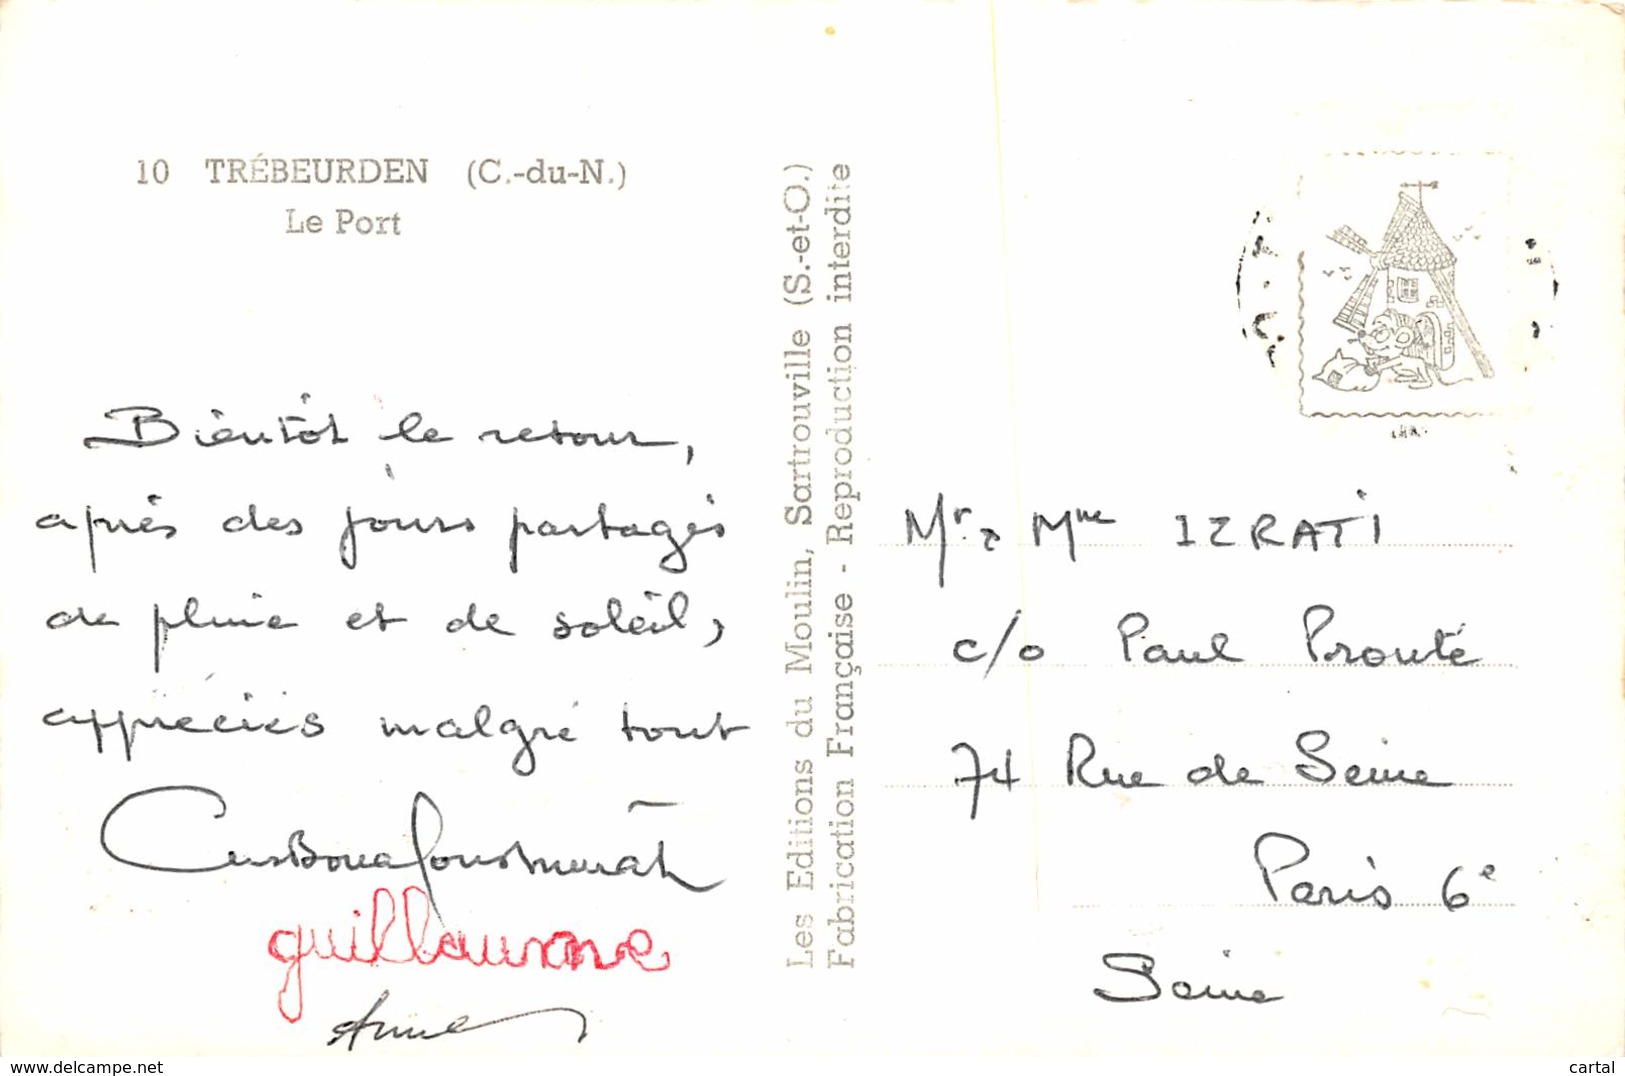 10 TRÉBEURDEN (C.-du-N.)
Le Port
Bientôt le retour,
après des jours partagés
de pluie et de soleil,
appréciés malgré tout
guillaume
Anne
Les Editions du Moulin, Sartrouville (S.-et-O.)
Fabrication Française - Reproduction interdite
Mr & Mme IZRATI
c/o Paul Prouté
74 Rue de Seine
Paris 6e
Seine
© delcampe.net
cartal